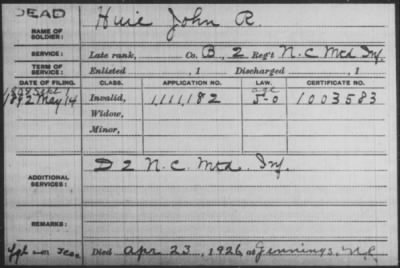 DEAD
NAME OF SOLDIER: Huie John R.
SERVICE: Late rank, Co. B, 2 Reg't N.C. Mtd Inf.
TERM OF SERVICE: Enlisted , 1 Discharged , 1
DATE OF FILING. CLASS. APPLICATION NO. LAW. CERTIFICATE NO.
1892 May 14 Invalid, 1,111,182 1003583
Widow,
Minor,
ADDITIONAL SERVICES: D 2 N.C. Mtd. Inf.
REMARKS:
Died Apr 23, 1926, at Jennings, N.C.